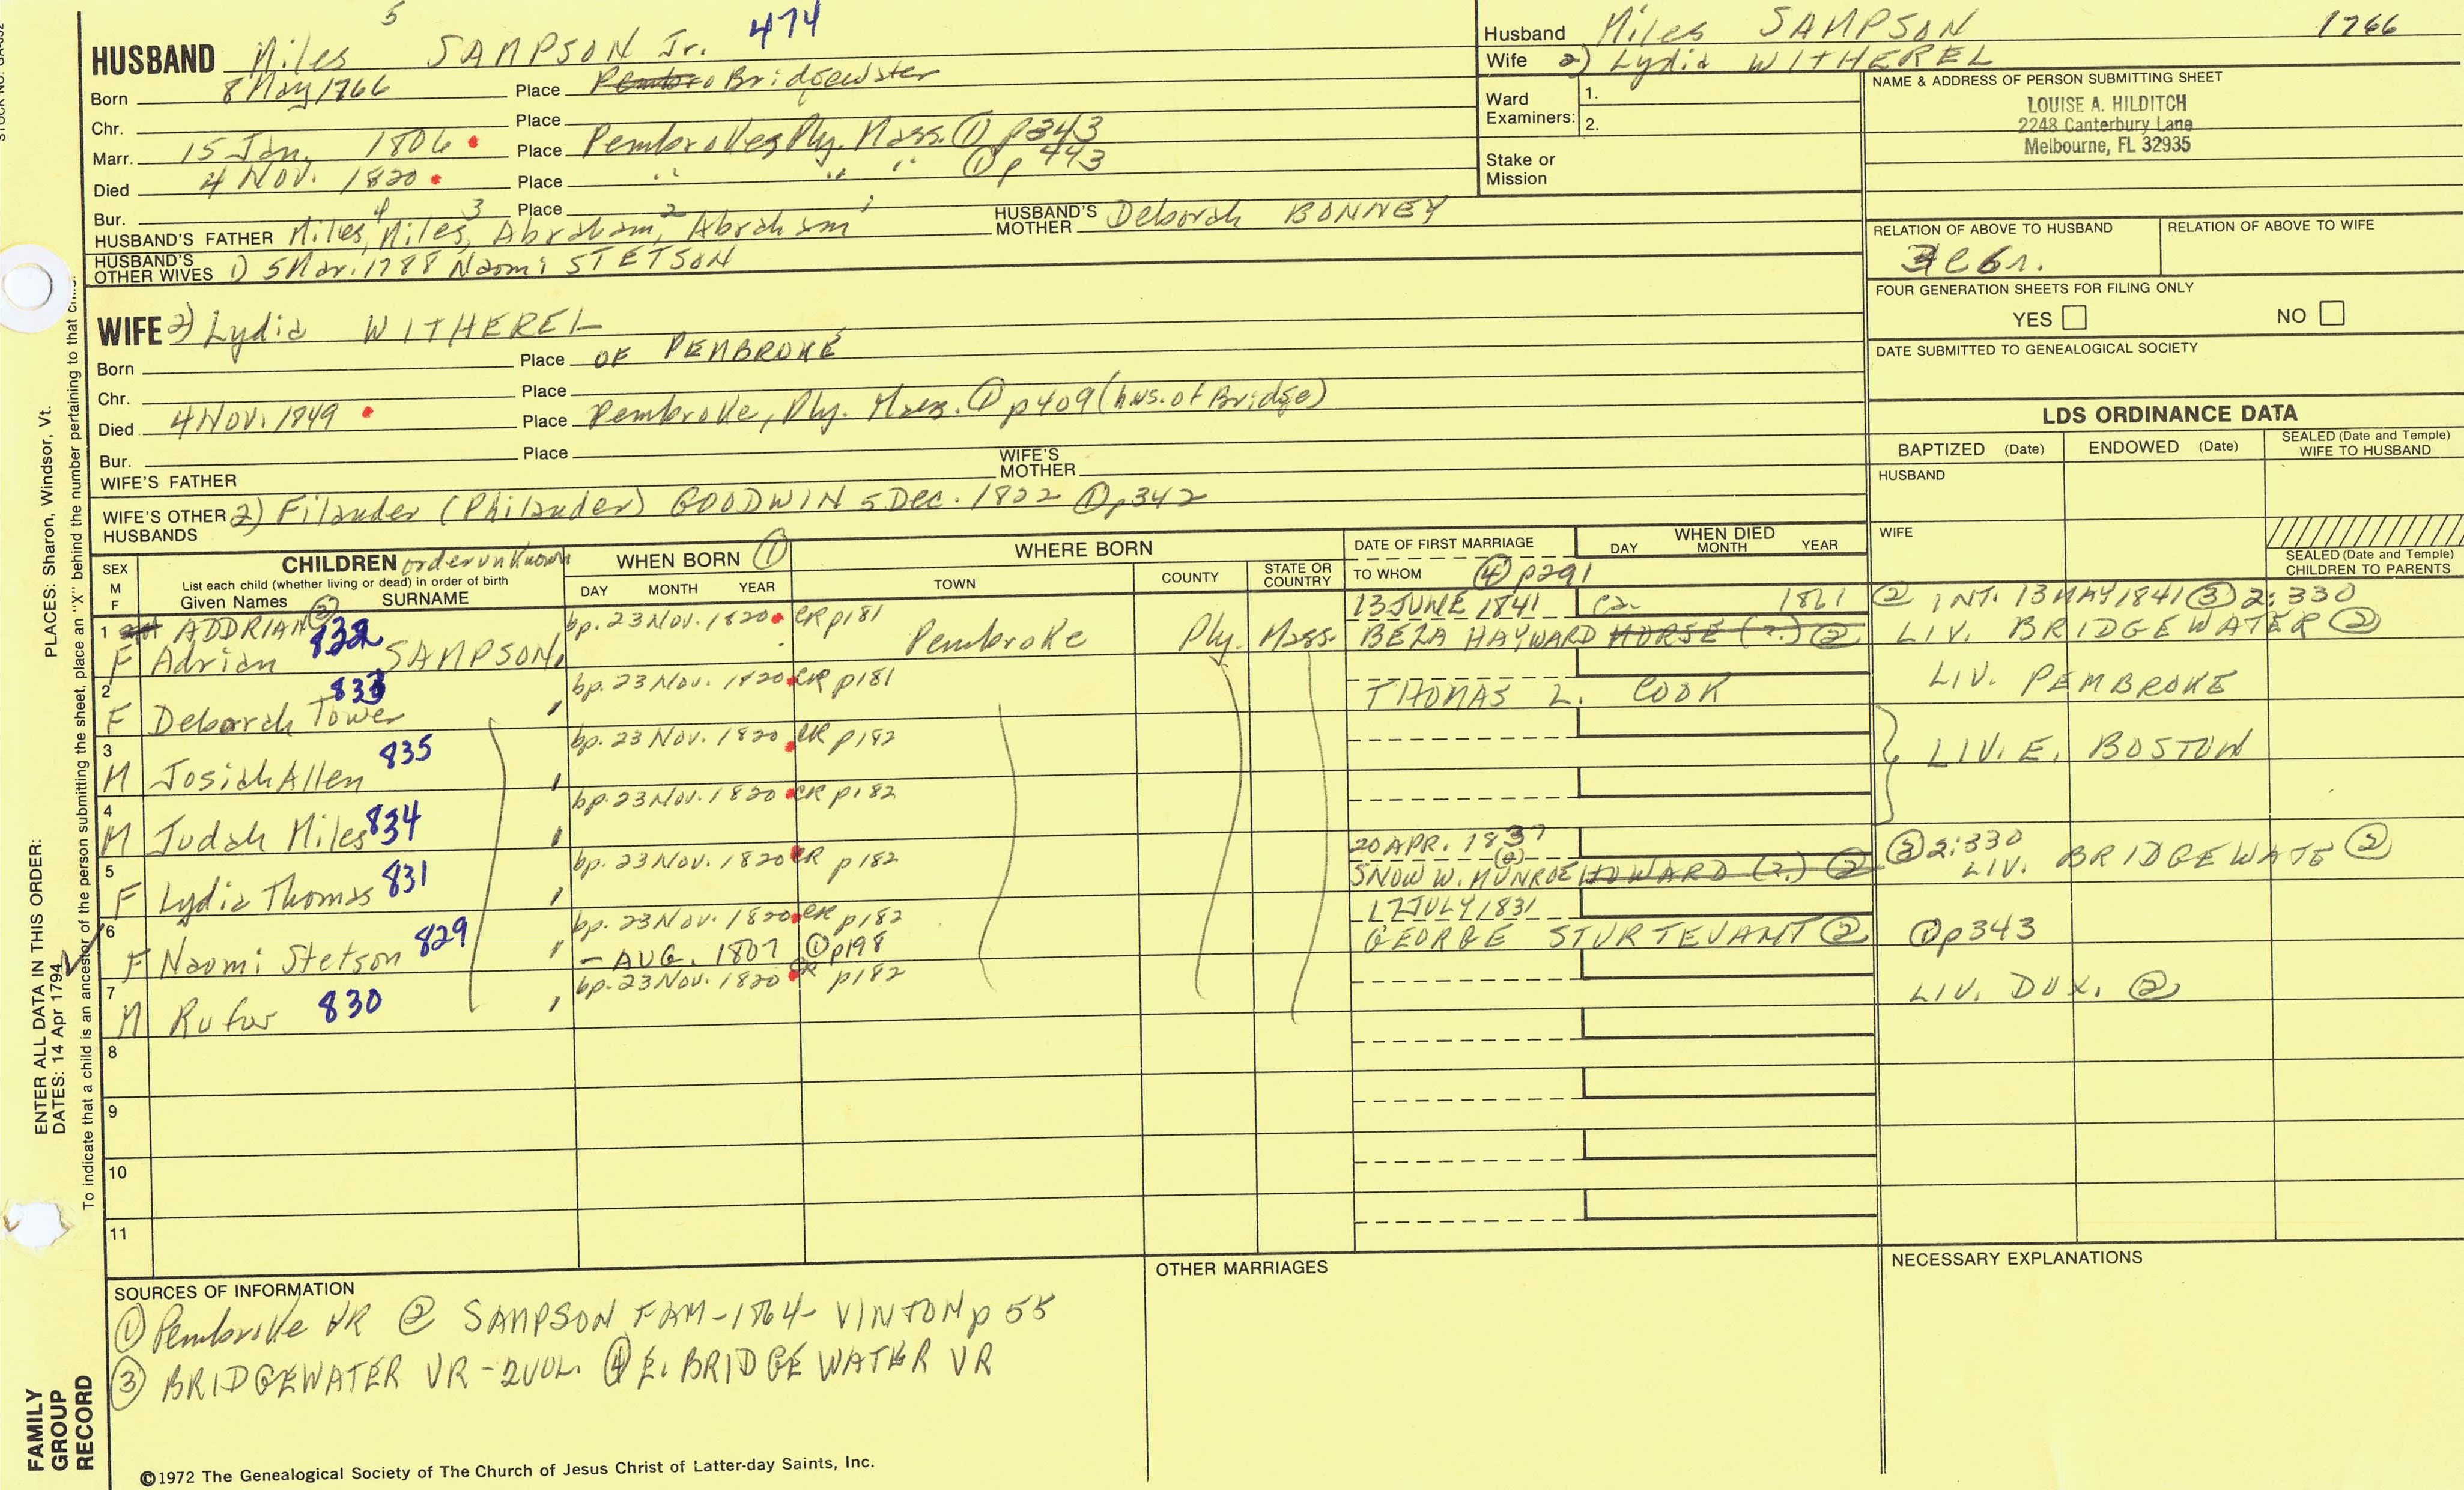 5
474
HUSBAND Miles SAMPSON Jr.
Born 8 May 1766 Place Pembro Bridgewater
Chr. Place
Marr. 15 Jan. 1806 Place Pembroke, Ply. Mass. ① p343
Died 4 Nov. 1820 Place " " " ① p 443
Bur. Place
HUSBAND'S FATHER Miles4, Miles3, Abraham2, Abraham1 HUSBAND'S MOTHER Deborah BONNEY
HUSBAND'S OTHER WIVES 1) 5 Mar. 1788 Naomi STETSON
Husband Miles SAMPSON 1766
Wife 2) Lydia WITHEREL
Ward Examiners: 1.
2.
Stake or Mission
NAME & ADDRESS OF PERSON SUBMITTING SHEET
LOUISE A. HILDITCH
2248 Canterbury Lane
Melbourne, FL 32935
RELATION OF ABOVE TO HUSBAND RELATION OF ABOVE TO WIFE
FOUR GENERATION SHEETS FOR FILING ONLY
YES NO
DATE SUBMITTED TO GENEALOGICAL SOCIETY
WIFE 2) Lydia WITHEREL
Born Place OF PEMBROKE
Chr. Place
Died 4 Nov. 1849 Place Pembroke, Ply. Mass. ① p409 (hus. of Bridge)
Bur. Place
WIFE'S FATHER WIFE'S MOTHER
WIFE'S OTHER HUSBANDS 2) Filander (Philander) GOODWIN 5 Dec. 1822 ① p342
LDS ORDINANCE DATA
BAPTIZED (Date) ENDOWED (Date) SEALED (Date and Temple) WIFE TO HUSBAND
HUSBAND
WIFE
SEALED (Date and Temple) CHILDREN TO PARENTS
SEX M F
CHILDREN order unknown
List each child (whether living or dead) in order of birth
Given Names SURNAME
WHEN BORN ①
DAY MONTH YEAR
WHERE BORN
TOWN COUNTY STATE OR COUNTRY
DATE OF FIRST MARRIAGE
TO WHOM ④ p291
WHEN DIED
DAY MONTH YEAR
1 ADDRIAN ② 832 bp. 23 Nov. 1820 CR p181 13 JUNE 1841 ca. 1861 ② INT. 13 MAY 1841 ③ 2:330
F Adrian SAMPSON, Pembroke Ply. Mass. BEZA HAYWARD MORSE (?) ② LIV. BRIDGEWATER ②
2 833 bp. 23 Nov. 1820 CR p181
F Deborah Tower " THOMAS L. COOK LIV. PEMBROKE
3 835 bp. 23 Nov. 1820 CR p182
M Josiah Allen " LIV. E. BOSTON
4 834 bp. 23 Nov. 1820 CR p182
M Judah Miles "
5 831 bp. 23 Nov. 1820 CR p182 20 APR. 1837 ③ 2:330
F Lydia Thomas " SNOW W. MUNROE HOWARD (?) ② LIV. BRIDGEWATE ②
6 829 bp. 23 Nov. 1820 CR p182 17 JULY 1831
F Naomi Stetson " – AUG. 1807 ① p198 GEORGE STURTEVANT ② ① p343
7 bp. 23 Nov. 1820 CR p182
M Rufus 830 " LIV. DUX. ②
8
9
10
11
SOURCES OF INFORMATION
① Pembroke VR ② SAMPSON FAM-1864- VINTON p 55
③ BRIDGEWATER VR-2VOL. ④ E. BRIDGEWATER VR
OTHER MARRIAGES
NECESSARY EXPLANATIONS
©1972 The Genealogical Society of The Church of Jesus Christ of Latter-day Saints, Inc.
PLACES: Sharon, Windsor, Vt.
ENTER ALL DATA IN THIS ORDER:
DATES: 14 Apr 1794
To indicate that a child is an ancestor of the person submitting the sheet, place an "X" behind the number pertaining to that
FAMILY GROUP RECORD